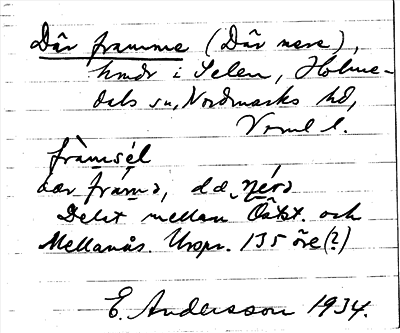 Där framme (Där nere),
hmdr i Selen, Holme-
dals sn, Nordmarks hd,
Vrml l.
fràmsél
dær frám̀ə, d.d. nérə
Delat mellan Östst. och
Mellanås. Urspr. 135 öre(?)
E. Andersson 1934.